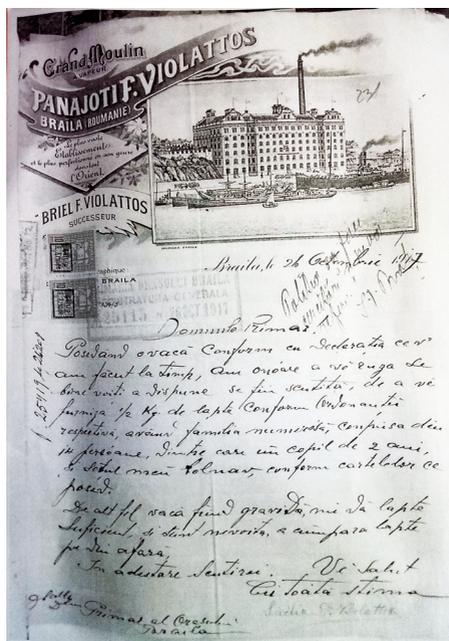 Grand Moulin
A VAPEUR
PANAJOTI F. VIOLATTOS
BRAILA (ROUMANIE)
Le plus vaste
Etablissement
et le plus perfectionné en son genre
de tout
l'Orient
BRIEL F. VIOLATTOS
SUCCESSEUR
Braila, le 26 1917
BRAILA
25115 1917
Domnule Primar,
Posedand o vacă conform cu Declarația ce v'
am făcut la timp, am onoare a vă ruga să
bine voiti a dispune să fiu scutită, de a vă
furniza 1/2 Kg de lapte conform Ordonantii
respectivă, având familie numeroasă, compusa din
14 persoane, dintre care un copil de 2 ani,
și soțul meu bolnav, conform cartelelor ce
posed.
De alt fel vaca fiind gravidă, nu dă lapte
suficient, și sunt nevoită, a cumpara lapte
pe din afara,
In așteptare Vă salut
Cu toată stima
Primar al Orașului
Braila